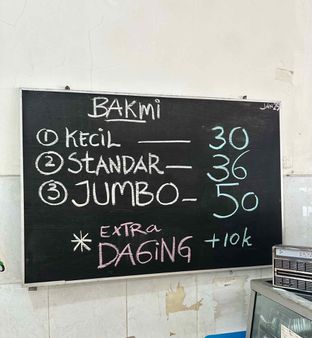 BAKMi
JAN 25
① KECiL — 30
② STANDAR — 36
③ JUMBO - 50
* EXTRa
DAGiNG +10k